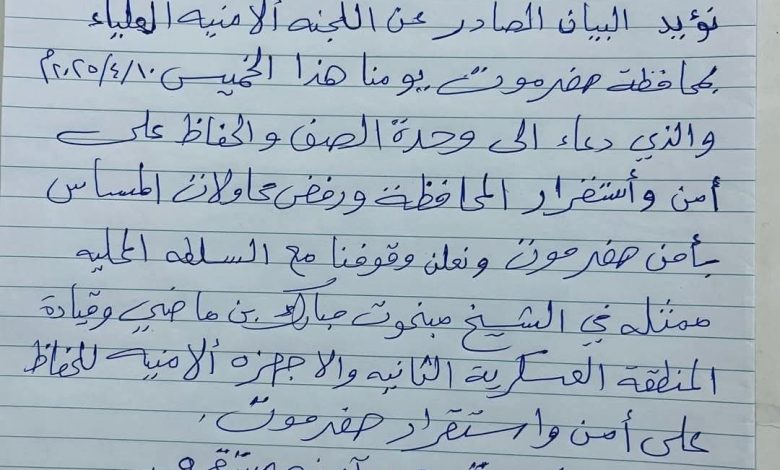 نؤيد البيان الصادر عن اللجنه الامنيه العلياء
بمحافظة حضرموت يومنا هذا الخميس ٢٠٢٥/٤/١٠م
والذي دعاء الى وحدة الصف والحفاظ على
أمن وأستقرار المحافظة ورفض محاولات المساس
بأمن حضرموت ونعلن وقوفنا مع السلطه المحليه
ممثله في الشيخ مبخوت مبارك بن ماضي وقيادة
المنطقة العسكرية الثانيه والاجهزه الامنيه للحفاظ
على أمن واستقرار حضرموت.